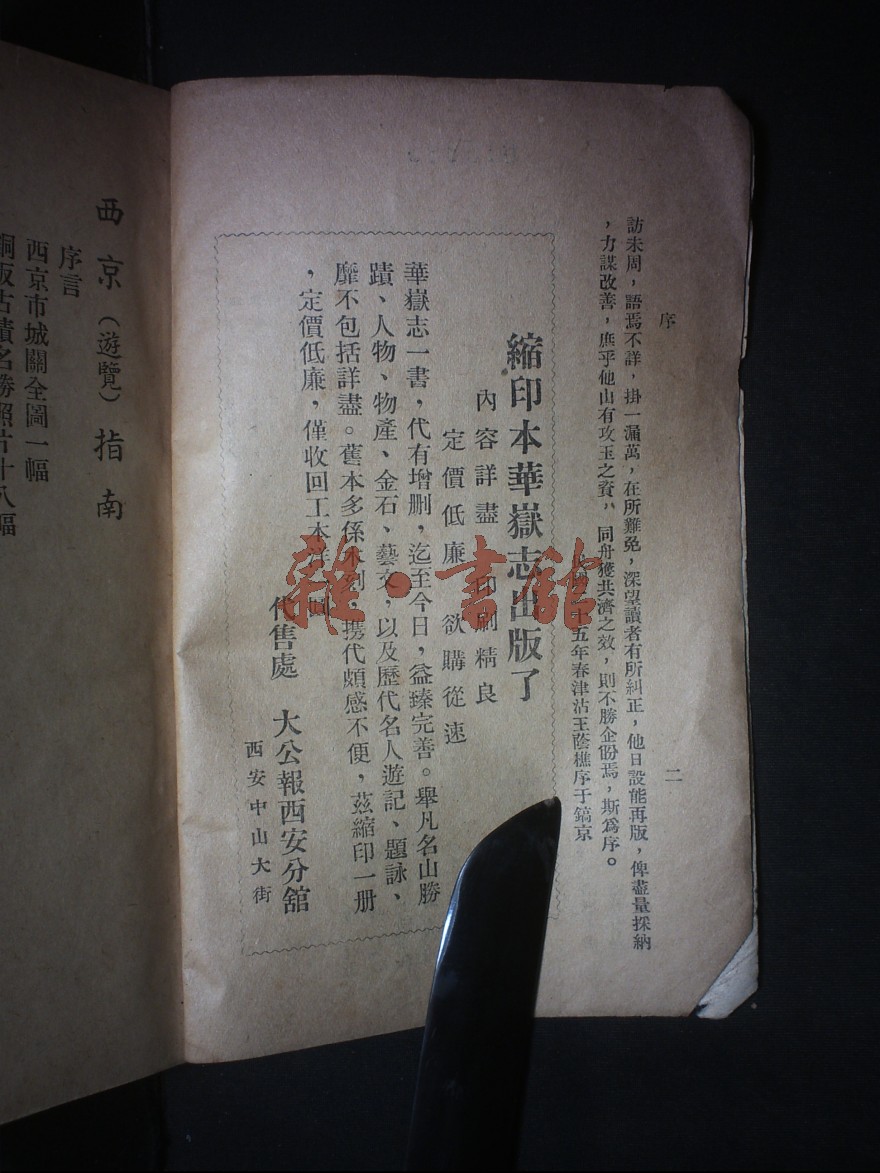 序
二
訪未周，語焉不詳，掛一漏萬，在所難免，深望讀者有所糾正，他日設能再版，俾盡量採納
，力謀改善，庶乎他山有攻玉之資，同舟獲共濟之效，則不勝企盼焉，斯爲序。
十五年春津沽王蔭樵序于鎬京
縮印本華嶽志出版了
內容詳盡 印刷精良
定價低廉 欲購從速
華嶽志一書，代有增刪，迄至今日，益臻完善。舉凡名山勝
蹟、人物、物產、金石、藝文，以及歷代名人遊記、題詠、
靡不包括詳盡。舊本多係木刻，携代頗感不便，茲縮印一册
，定價低廉，僅收回工本洋
代售處 大公報西安分舘
西安中山大街
西京（遊覽）指南
序言
西京市城關全圖一幅
銅版古蹟名勝照片十八幅
雜·書舘